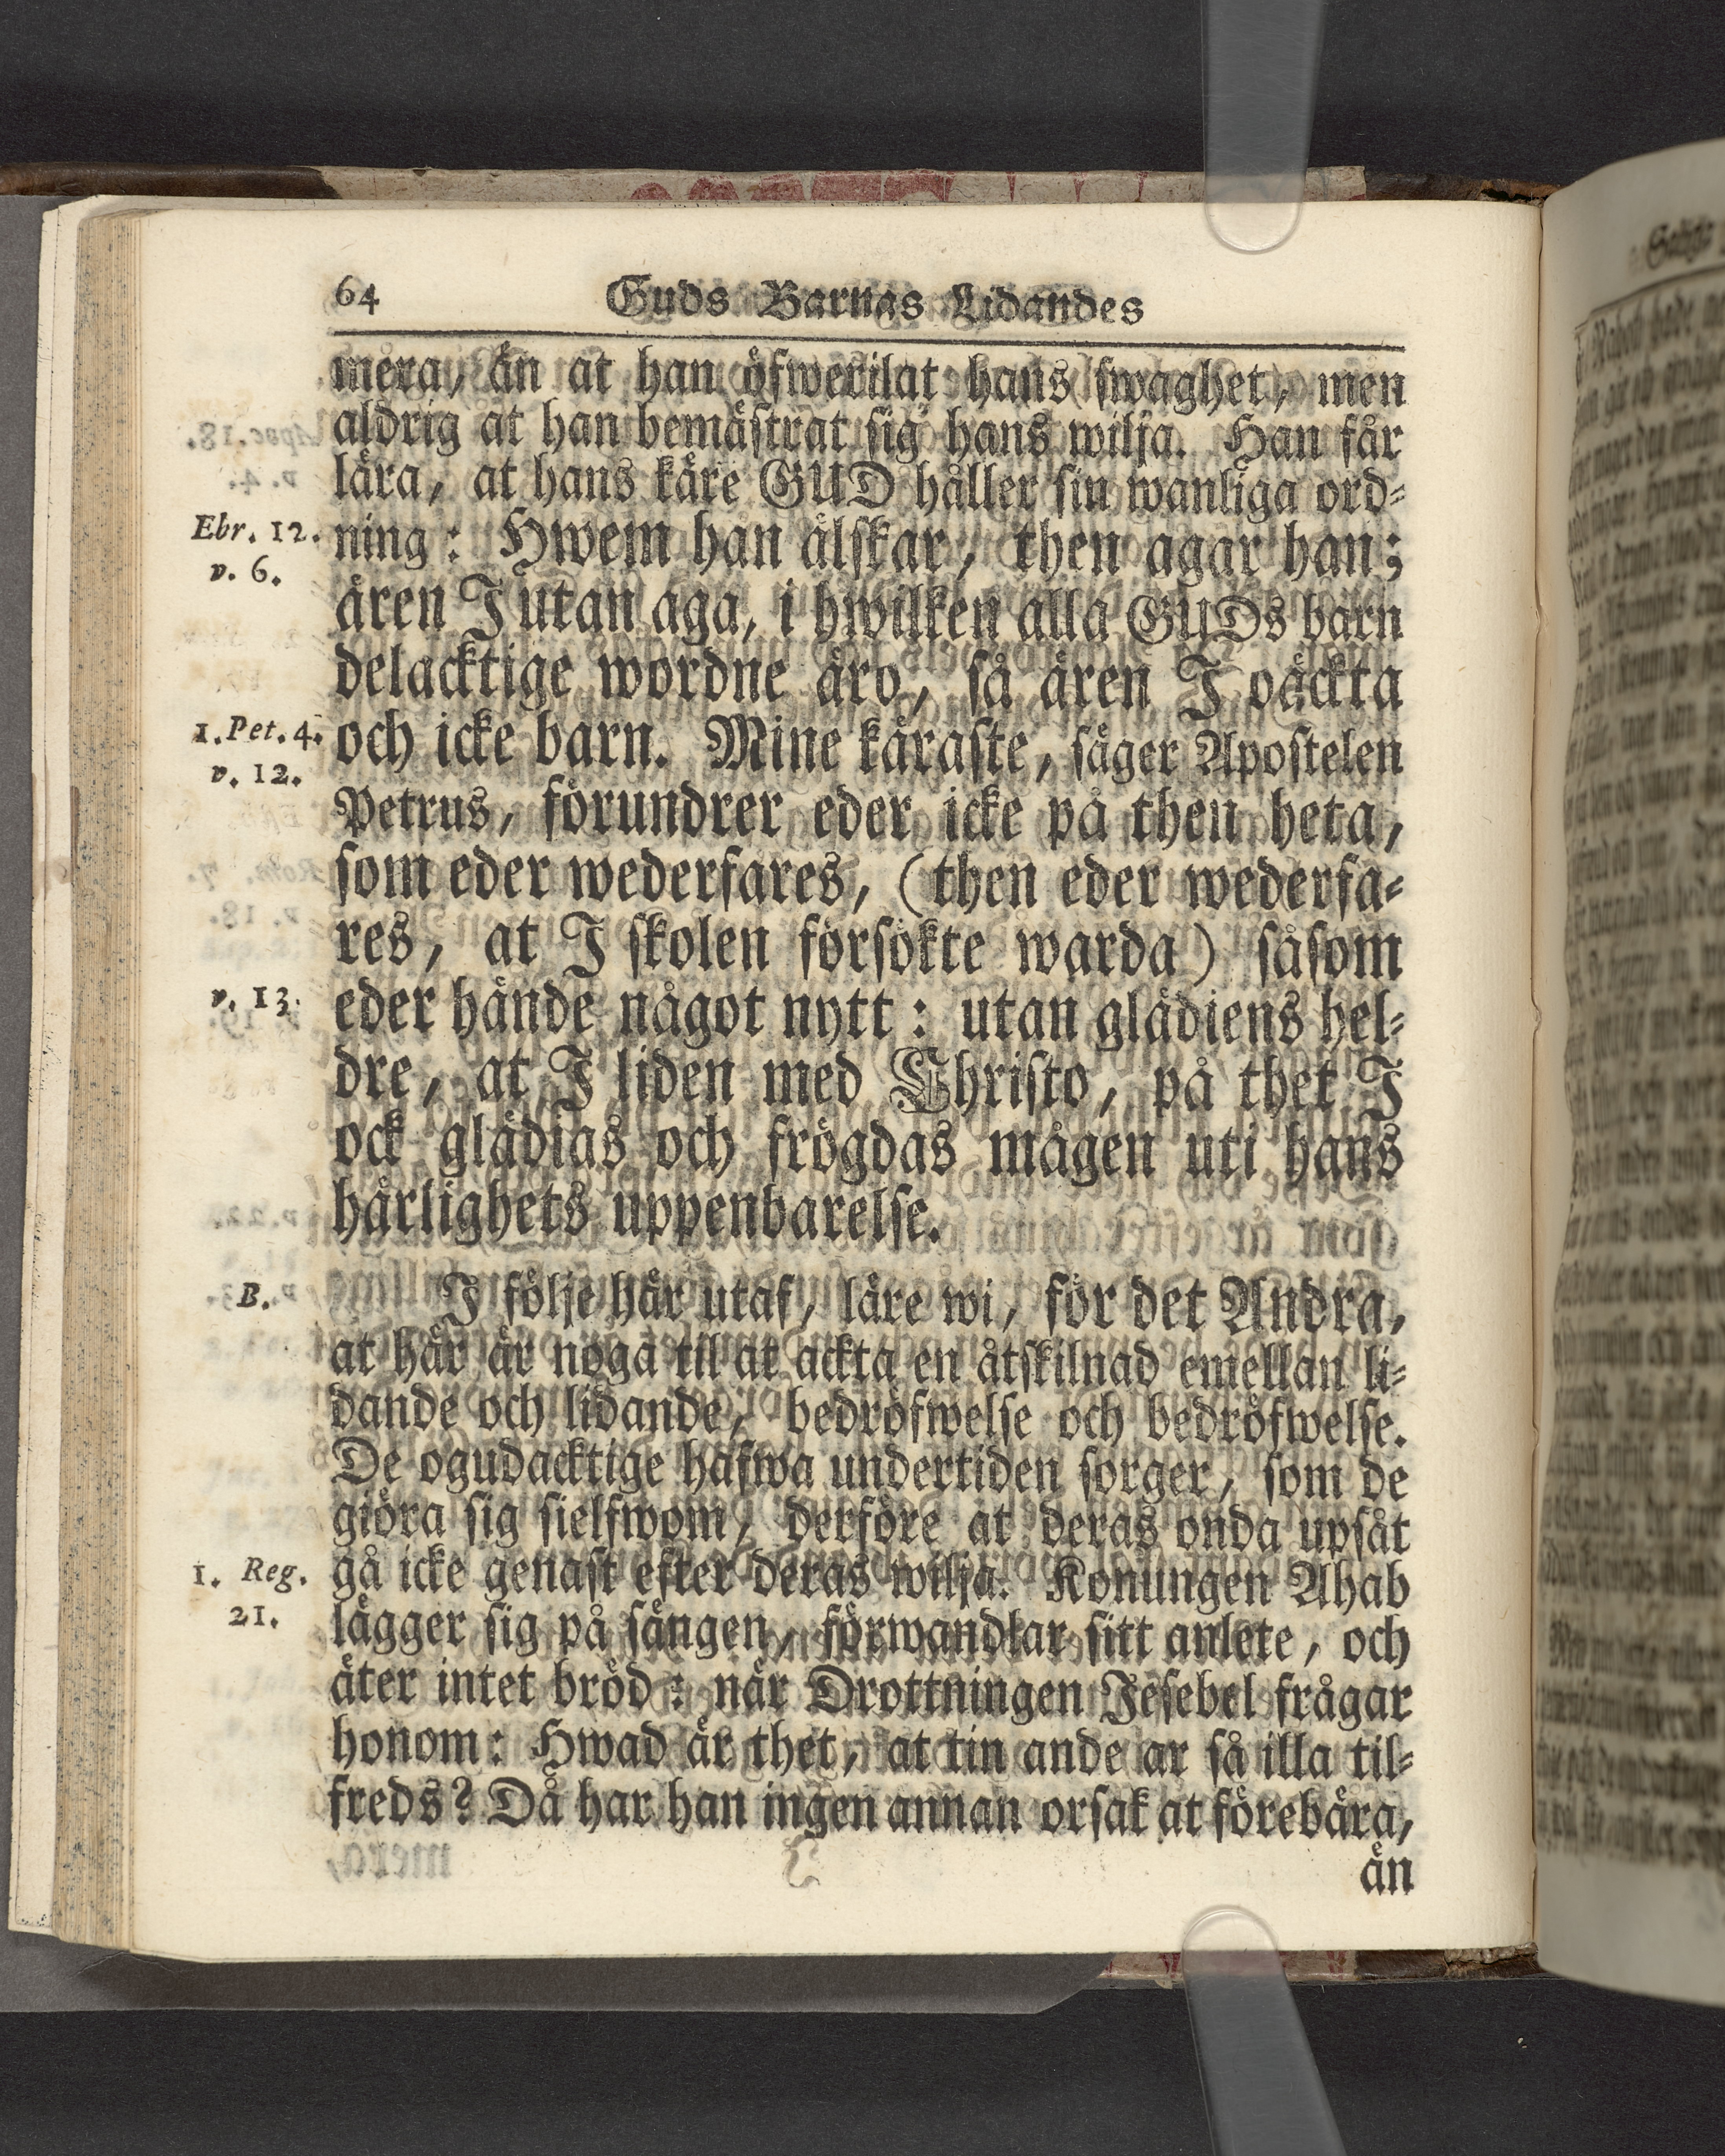 64 Guds Barnas Lidandes
mera, än at han öfwerilat hans swaghet, men
aldrig at han bemästrat sig hans wilja. Han får
lära, at hans käre GUD håller sin wanliga ord-
Ebr. 12. ning: Hwem han älskar, then agar han;
v. 6.
ären I utan aga, i hwilken alla GUDs barn
delacktige wordne äro, så ären I oäckta
1. Pet. 4. och icke barn. Mine käraste, säger Apostelen
v. 12.
Petrus, förundrer eder icke på then heta,
som eder wederfares, (then eder wederfa-
res, at I skolen försökte warda) såsom
v. 13. eder hände något nytt: utan glädiens hel-
dre, at I liden med Christo, på thet I
ock glädias och frögdas mågen uti hans
härlighets uppenbarelse.
B. I följe här utaf, läre wi, för det Andra,
at här är noga til at ackta en åtskilnad emellan li-
dande och lidande, bedröfwelse och bedröfwelse.
De ogudacktige hafwa undertiden sorger, som de
giöra sig sielfwom, derföre at deras onda upsåt
1. Reg. gå icke genast efter deras wilja. Konungen Ahab
21.
lägger sig på sängen, förwandlar sitt anlete, och
äter intet bröd: när Drottningen Jesebel frågar
honom: Hwad är thet, at tin ande ar så illa til-
freds? Då har han ingen annan orsak at förebära,
än